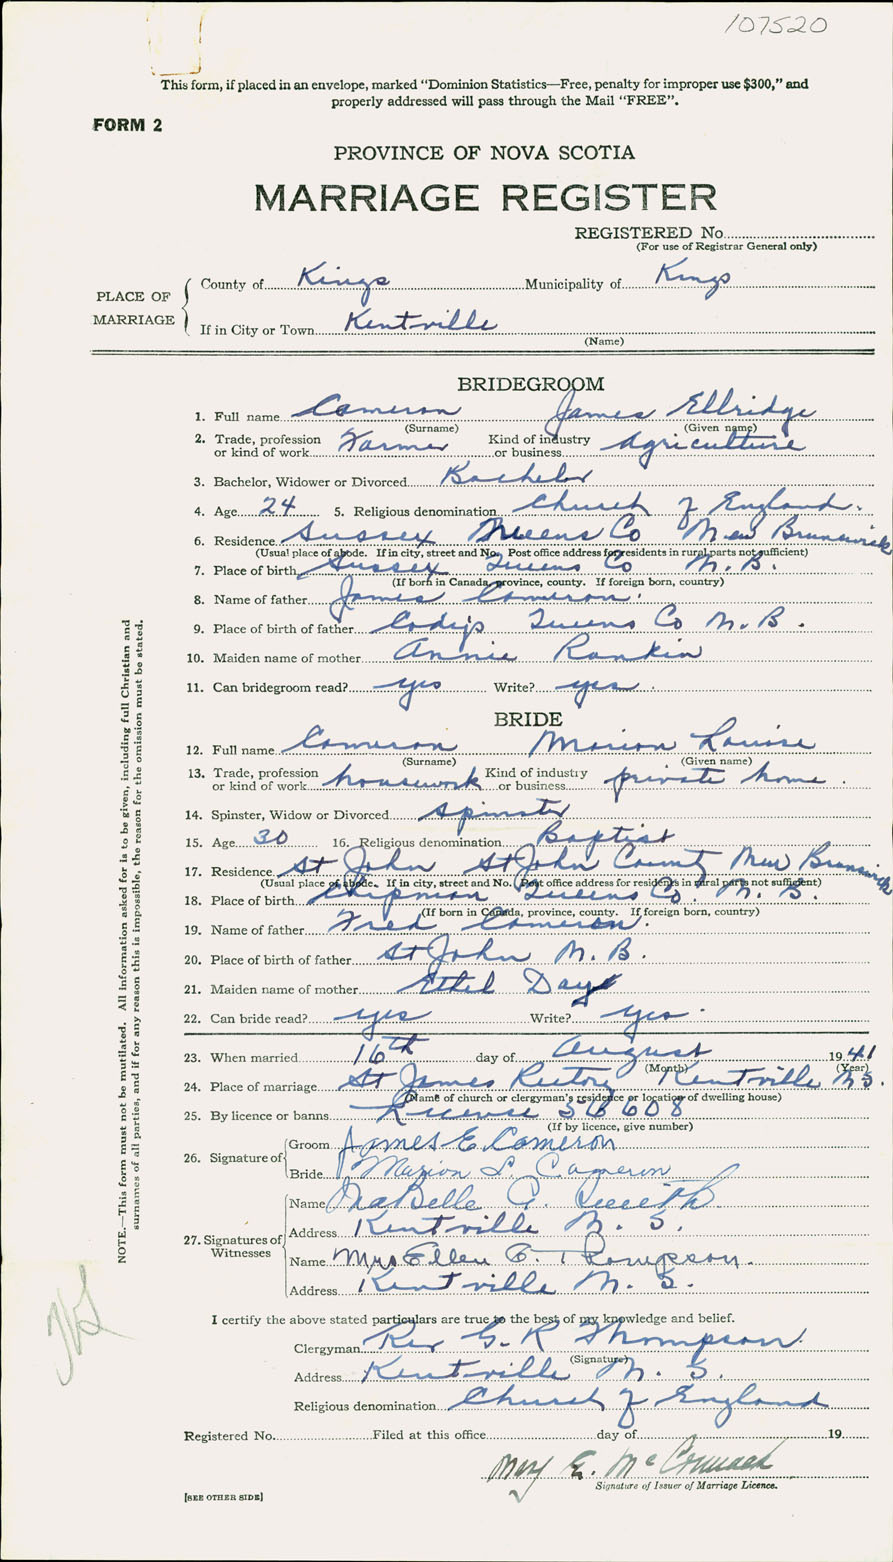 107520
This form, if placed in an envelope, marked “Dominion Statistics—Free, penalty for improper use $300,” and
properly addressed will pass through the Mail “FREE”.
FORM 2
PROVINCE OF NOVA SCOTIA
MARRIAGE REGISTER
REGISTERED No.
(For use of Registrar General only)
PLACE OF MARRIAGE
County of Kings Municipality of Kings
If in City or Town Kentville
(Name)
BRIDEGROOM
1. Full name Cameron James Ellridge
(Surname) (Given name)
2. Trade, profession or kind of work Farmer Kind of industry or business Agriculture
3. Bachelor, Widower or Divorced Bachelor
4. Age 24 5. Religious denomination Church of England.
6. Residence Sussex Queens Co New Brunswick
(Usual place of abode. If in city, street and No. Post office address for residents in rural parts not sufficient)
7. Place of birth Sussex Queens Co N. B.
(If born in Canada, province, county. If foreign born, country)
8. Name of father James Cameron.
9. Place of birth of father Codys Queens Co N. B.
10. Maiden name of mother Annie Rankin
11. Can bridegroom read? yes Write? yes.
BRIDE
12. Full name Cameron Marion Louise
(Surname) (Given name)
13. Trade, profession or kind of work housework Kind of industry or business private home.
14. Spinster, Widow or Divorced Spinster
15. Age 30 16. Religious denomination Baptist
17. Residence St John St John County New Brunswick
(Usual place of abode. If in city, street and No. Post office address for residents in rural parts not sufficient)
18. Place of birth Chipman Queens Co. N. B.
(If born in Canada, province, county. If foreign born, country)
19. Name of father Fred Cameron.
20. Place of birth of father St John N. B.
21. Maiden name of mother Ethel Day
22. Can bride read? yes Write? yes.
23. When married 16th day of August 1941
(Month) (Year)
24. Place of marriage St James Rectory Kentville N S.
(Name of church or clergyman's residence or location of dwelling house)
25. By licence or banns License 56608
(If by licence, give number)
26. Signature of
Groom James E. Cameron
Bride Marion L. Cameron
27. Signatures of Witnesses
Name InaBelle A. Smith
Address Kentville N. S.
Name Mrs Ellen E. Thompson.
Address Kentville N. S.
I certify the above stated particulars are true to the best of my knowledge and belief.
Clergyman Rev G. R Thompson.
(Signature)
Address Kentville N. S.
Religious denomination Church of England
Registered No. Filed at this office day of 19
E. McCormack
Signature of Issuer of Marriage Licence.
[SEE OTHER SIDE]
NOTE.—This form must not be mutilated. All information asked for is to be given, including full Christian and
surnames of all parties, and if for any reason this is impossible, the reason for the omission must be stated.